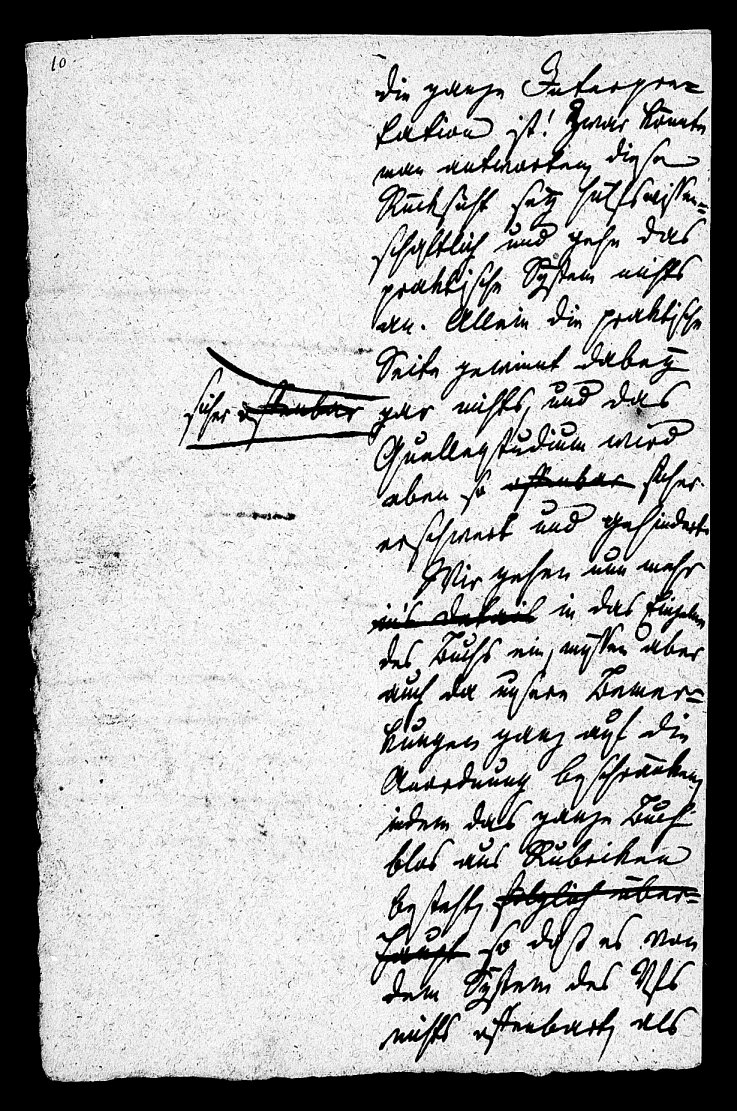 10
die ganze Interpre=
tation ist! Zwar könnte
man antworten, diese
Rücksicht sey hülfswissen=
schaftlich und gehe das
praktische System nichts
an. Allein die praktische
Seite gewinnt dabey
gar nichts, und das
Quellenstudium wird
eben so offenbar sicher
erschwert und gehindert.
sicher offenbar
Wir gehen nun mehr
in's Detail in das Einzelne
des Buchs ein, müssen aber
auch da unsere Bemer=
kungen ganz auf die
Anordnung beschränken,
indem das ganze Buch
blos aus Rubriken
besteht, folglich über=
haupt so daß es von
dem System des Vfs
nichts offenbart, als